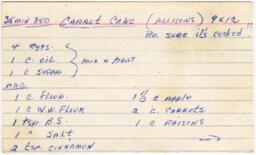 35 min 350 CARROT CAKE (ALLISONS) 9x12
BE SURE it's cooked."
4 Eggs.
1 C. OIL
1 C SUGAR
MIX & BEAT
ADD
1 C FLOUR.
1 C W.W. FLOUR
1 tsp B.S.
1 " SALT
2 tsp. CINNAMON
1 1/2 C APPLE
2 C. CARROTS.
1 C RAISINS